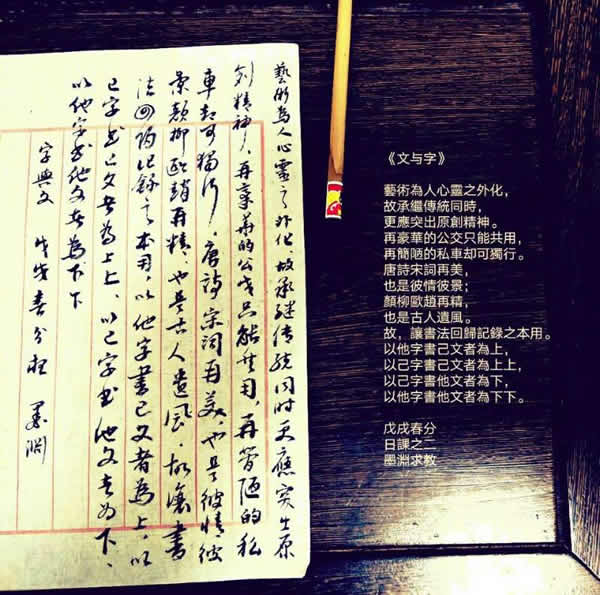 藝術為人心靈之外化.故承繼传統同时更應突出原
創精神.再豪華的公交只能共用.再簡陋的私
車却可獨行.唐詩宋詞再美.也是彼情彼
景顏柳歐趙再精.也是古人遺風.故讓書
法回歸記錄之本用.以他字書己文者為上.以
己字書己文者為上上.以己字書他文者為下.
以他字書他文者為下下
字與文 戊戌春分 墨淵
《文与字》
藝術為人心靈之外化，
故承繼傳統同時，
更應突出原創精神。
再豪華的公交只能共用，
再簡陋的私車却可獨行。
唐詩宋詞再美，
也是彼情彼景；
顏柳歐趙再精，
也是古人遺風。
故，讓書法回歸記錄之本用。
以他字書己文者為上，
以己字書己文者為上上，
以己字書他文者為下，
以他字書他文者為下下。
戊戌春分
日課之二
墨淵求教